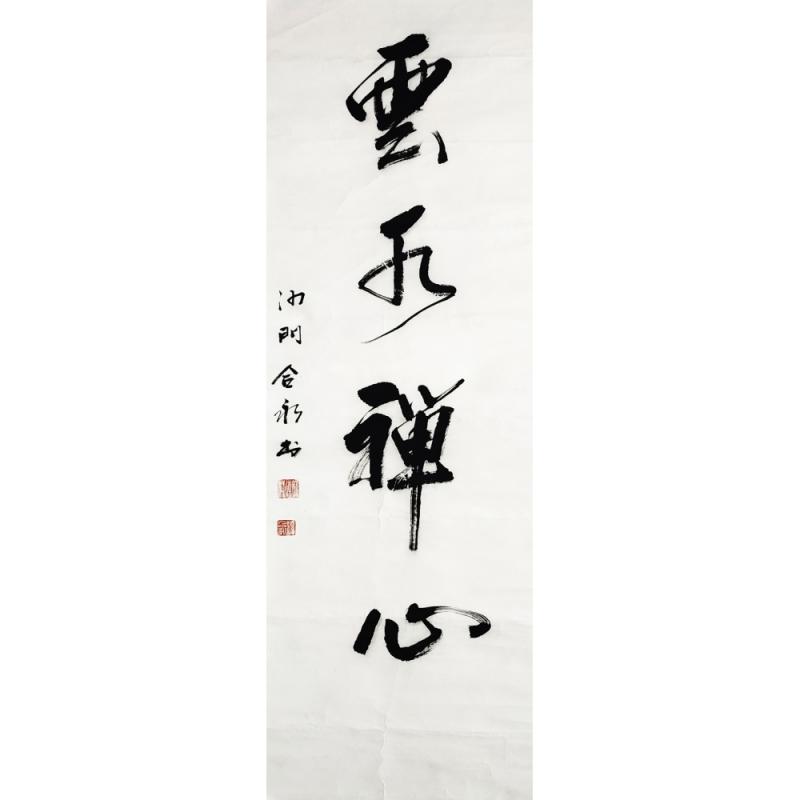 雲水禪心
沙門合永书